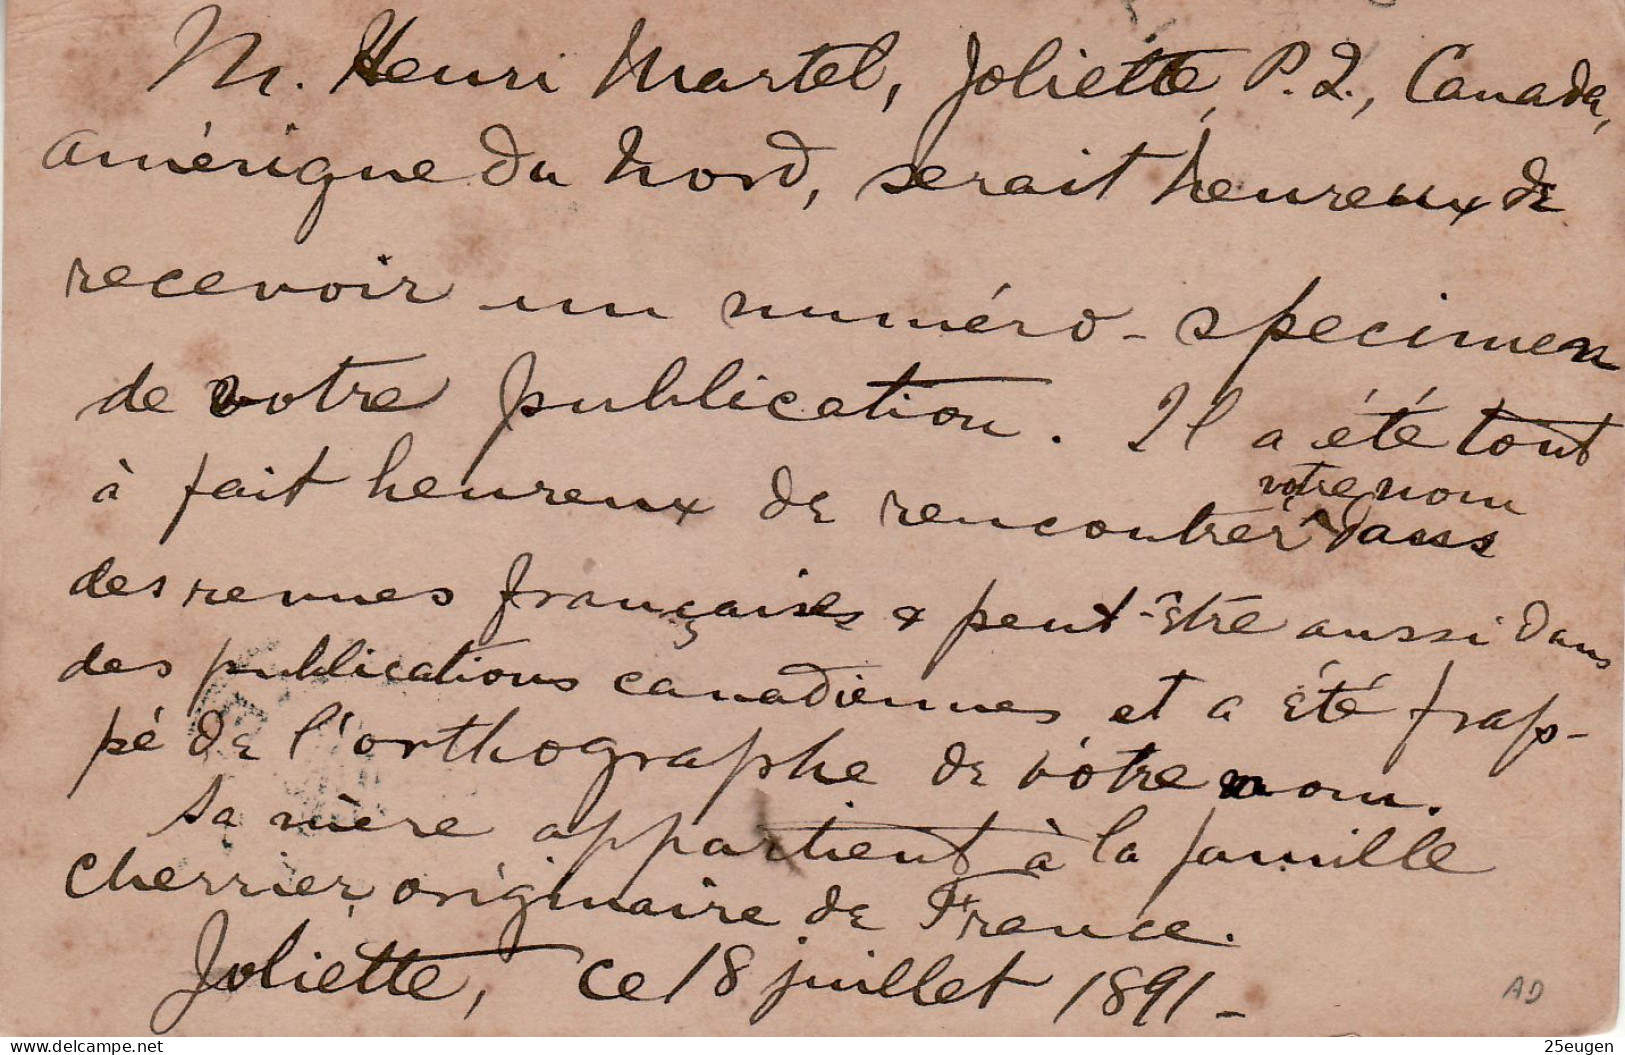 M. Henri Martel, Joliette, P. Q., Canada,
amérique du Nord, serait heureux de
recevoir un numéro-specimen
de votre publication. Il a été tout
votre nom
à fait heureux de rencontrer ^ dans
des revues françaises & peut-être aussi dans
des publications canadiennes et a été frap-
pé de l'orthographe de votre nom.
Sa mère appartient à la famille
Cherrier, originaire de France.
Joliette, ce 18 juillet 1891 -
AD
25eugen
delcampe.net